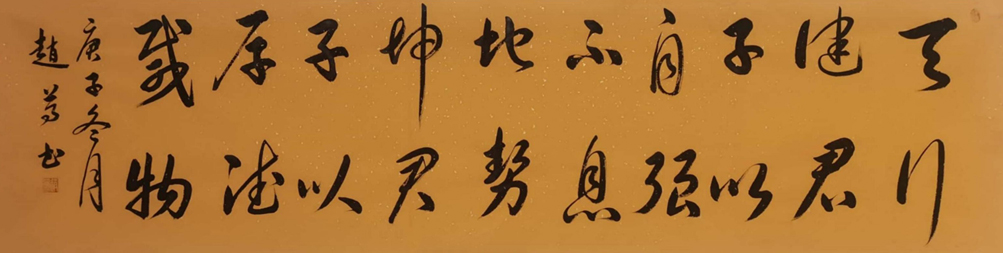 天行
健君
子以
自强
不息
地勢
坤君
子以
厚德
載物
庚子冬月
趙 书